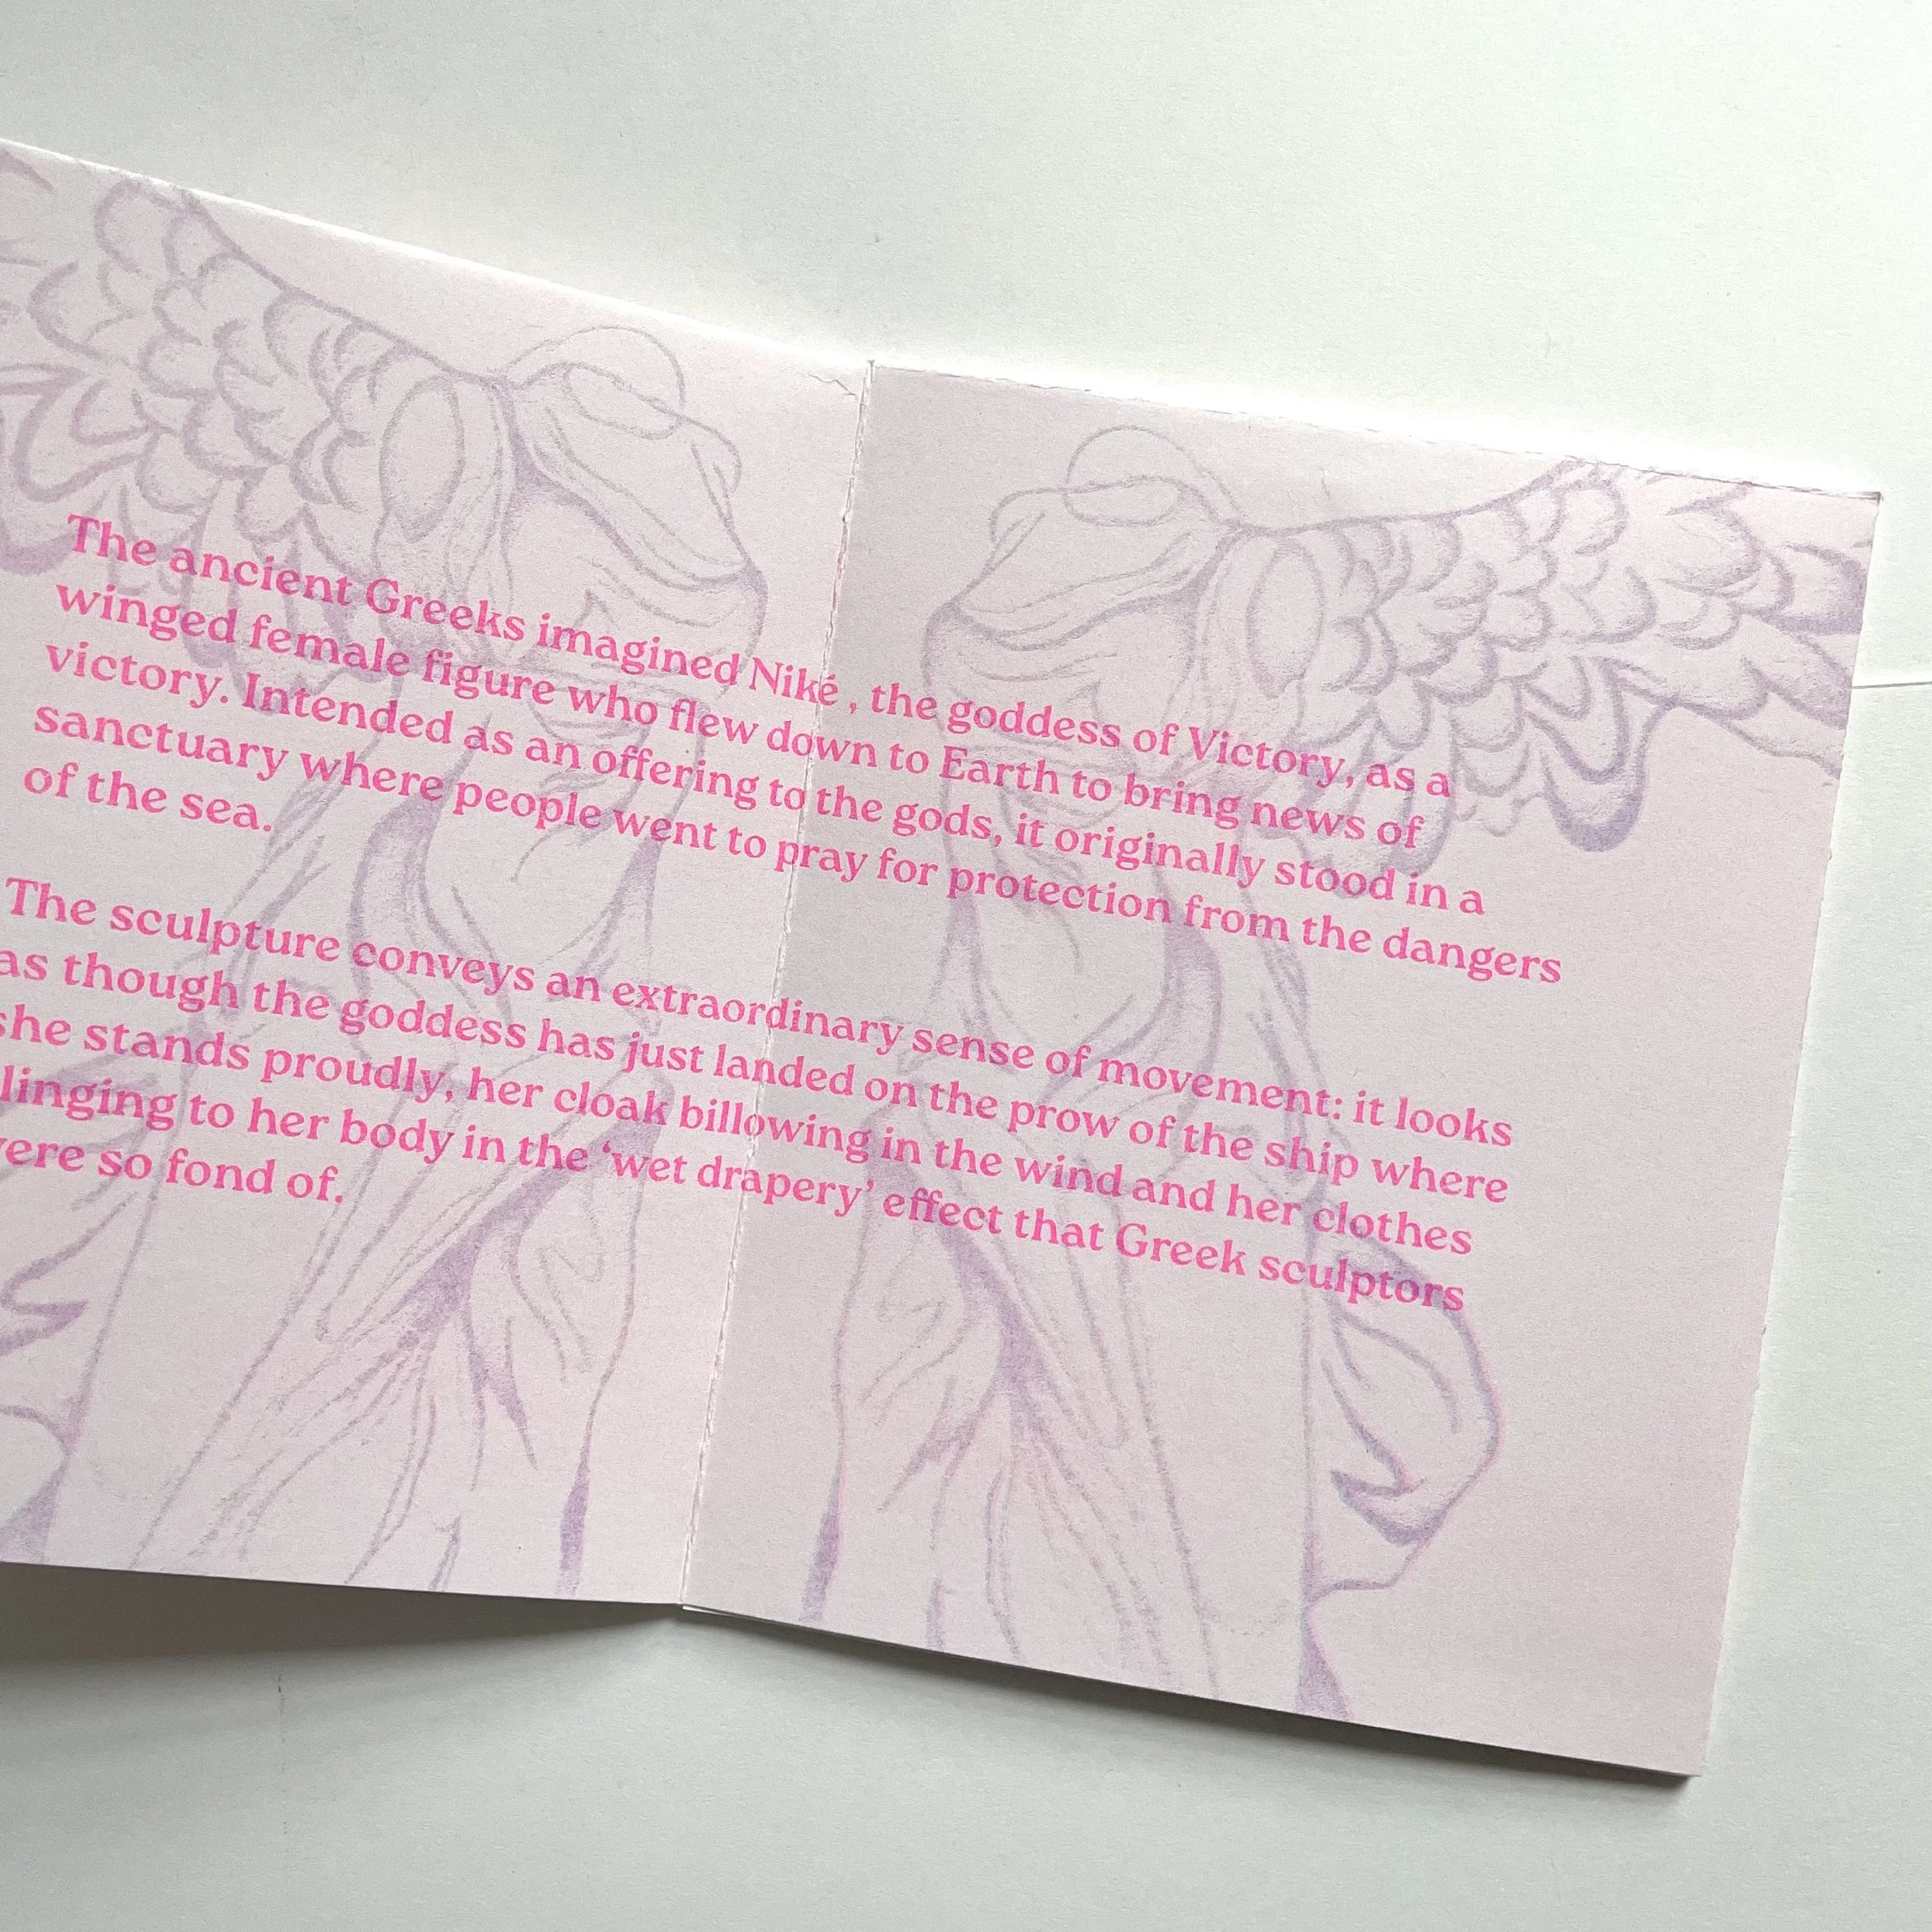 The ancient Greeks imagined Niké , the goddess of Victory, as a
winged female figure who flew down to Earth to bring news of
victory. Intended as an offering to the gods, it originally stood in a
sanctuary where people went to pray for protection from the dangers
of the sea.
The sculpture conveys an extraordinary sense of movement: it looks
as though the goddess has just landed on the prow of the ship where
she stands proudly, her cloak billowing in the wind and her clothes
linging to her body in the ‘wet drapery’ effect that Greek sculptors
ere so fond of.